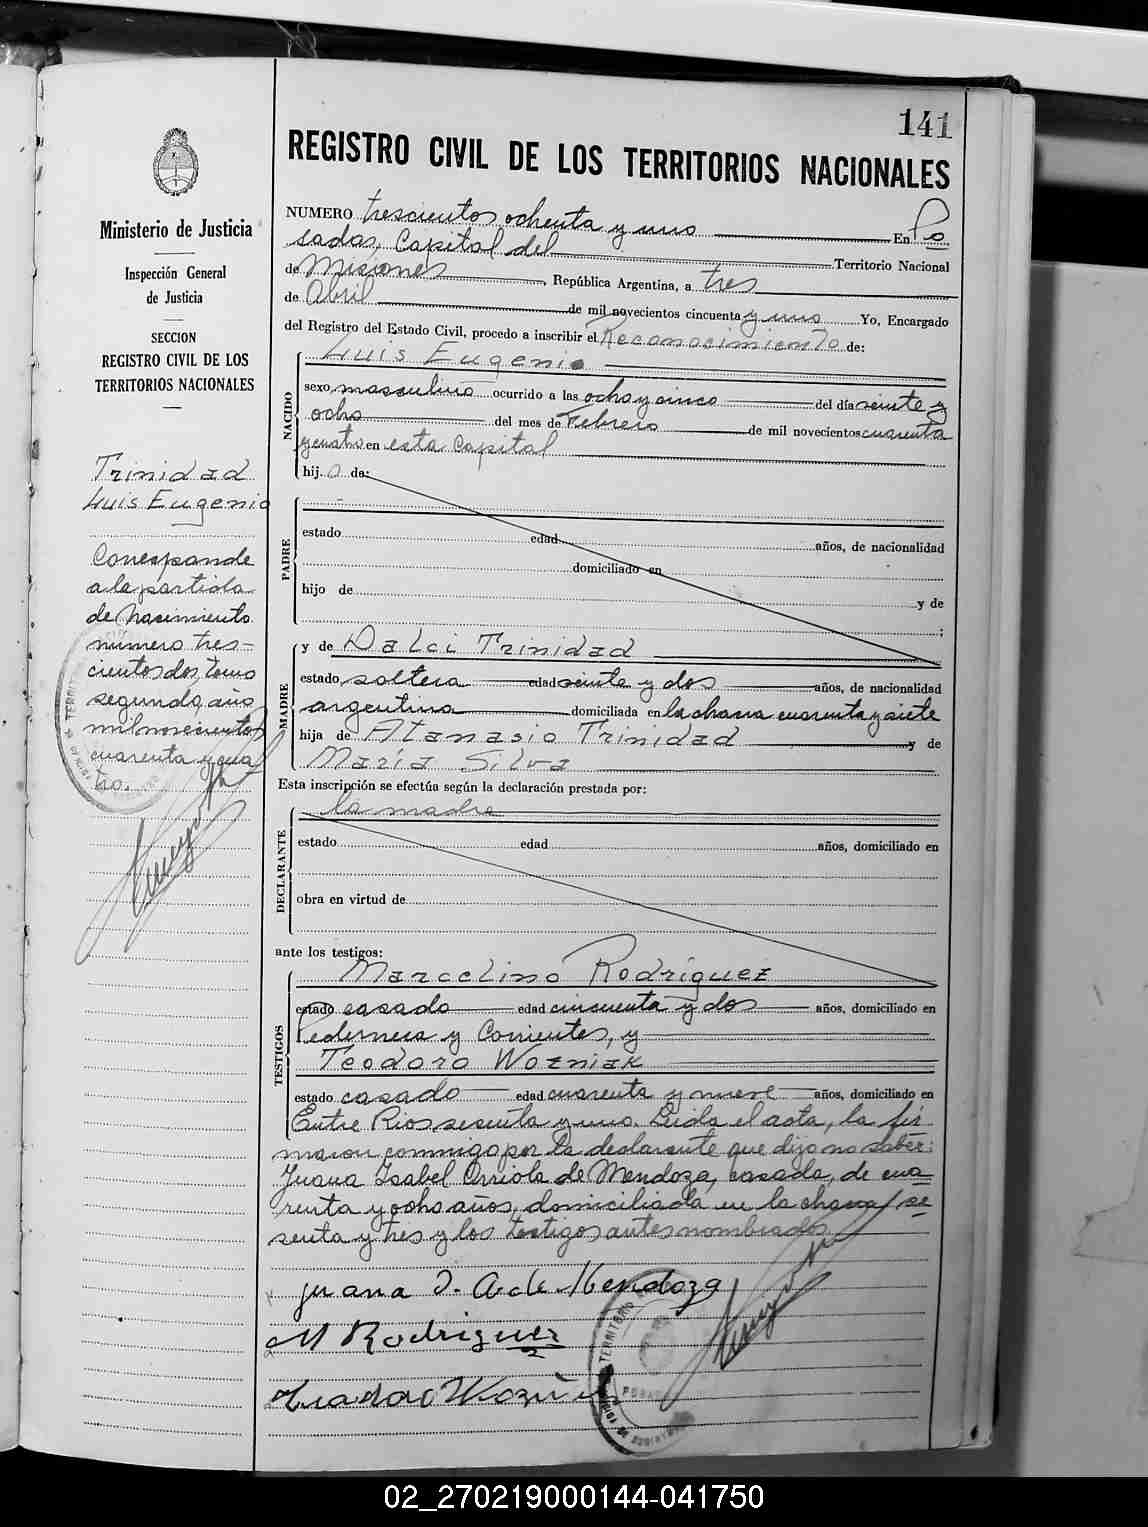 141
REGISTRO CIVIL DE LOS TERRITORIOS NACIONALES
Ministerio de Justicia
Inspección General
de Justicia
SECCION
REGISTRO CIVIL DE LOS
TERRITORIOS NACIONALES
Trinidad
Luis Eugenio
Corresponde
a la partida
de nacimiento
número tres-
cientos dos, tomo
segundo, año
mil novecientos
cuarenta y cua
tro.
NUMERO trescientos ochenta y uno En Po
sadas, Capital del Territorio Nacional
de Misiones, República Argentina, a tres
de Abril de mil novecientos cincuenta y uno Yo, Encargado
del Registro del Estado Civil, procedo a inscribir el Reconocimiento de:
NACIDO
Luis Eugenio
sexo masculino ocurrido a las ocho y cinco del día veinte y
ocho del mes de Febrero de mil novecientos cuarenta
y cuatro en esta Capital
hijo de:
PADRE
estado edad años, de nacionalidad
domiciliado en
hijo de y de
;
MADRE
y de Dalci Trinidad
estado soltera edad veinte y dos años, de nacionalidad
argentina domiciliada en la chacra cuarenta y siete
hija de Atanasio Trinidad y de
María Silva
Esta inscripción se efectúa según la declaración prestada por:
DECLARANTE
la madre
estado edad años, domiciliado en
obra en virtud de
ante los testigos:
TESTIGOS
Marcelino Rodríguez
estado casado edad cincuenta y dos años, domiciliado en
Pedernera y Corrientes, y
Teodoro Wozniak
estado casado edad cuarenta y nueve años, domiciliado en
Entre Rios sesenta y uno. Leida el acta, la fir
maron conmigo por la declarante que dijo no saber:
Juana Isabel Arriola de Mendoza, casada, de cua-
renta y ocho años, domiciliada en la chacra se-
senta y tres y los testigos antes nombrados.
Juana I. A. de Mendoza
M Rodriguez
02_270219000144-041750